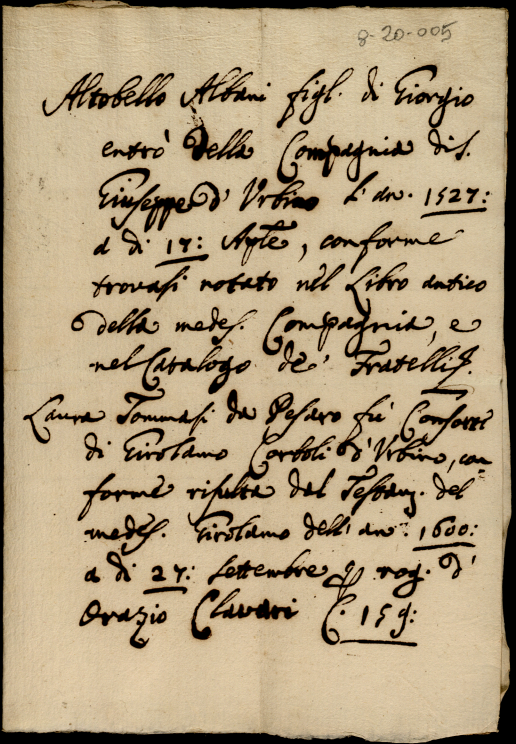 8-20-005
Altobello Albani figl. di Giorgio
entrò della Compagnia di S.
Giuseppe d'Urbino l'an. 1527:
a di 17: Aple, conforme
trovasi notato nel Libro antico
della medes. Compagnia, e
nel Catalogo de' Fratelli
Laura Tommasi da Pesaro fù Consorte
di Girolamo Corboli d'Urbino, con
forme risulta dal Testam. del
medes. Girolamo dell'an. 1600:
a di 27: Settembre rog. d'
Orazio Clavari C. 159: